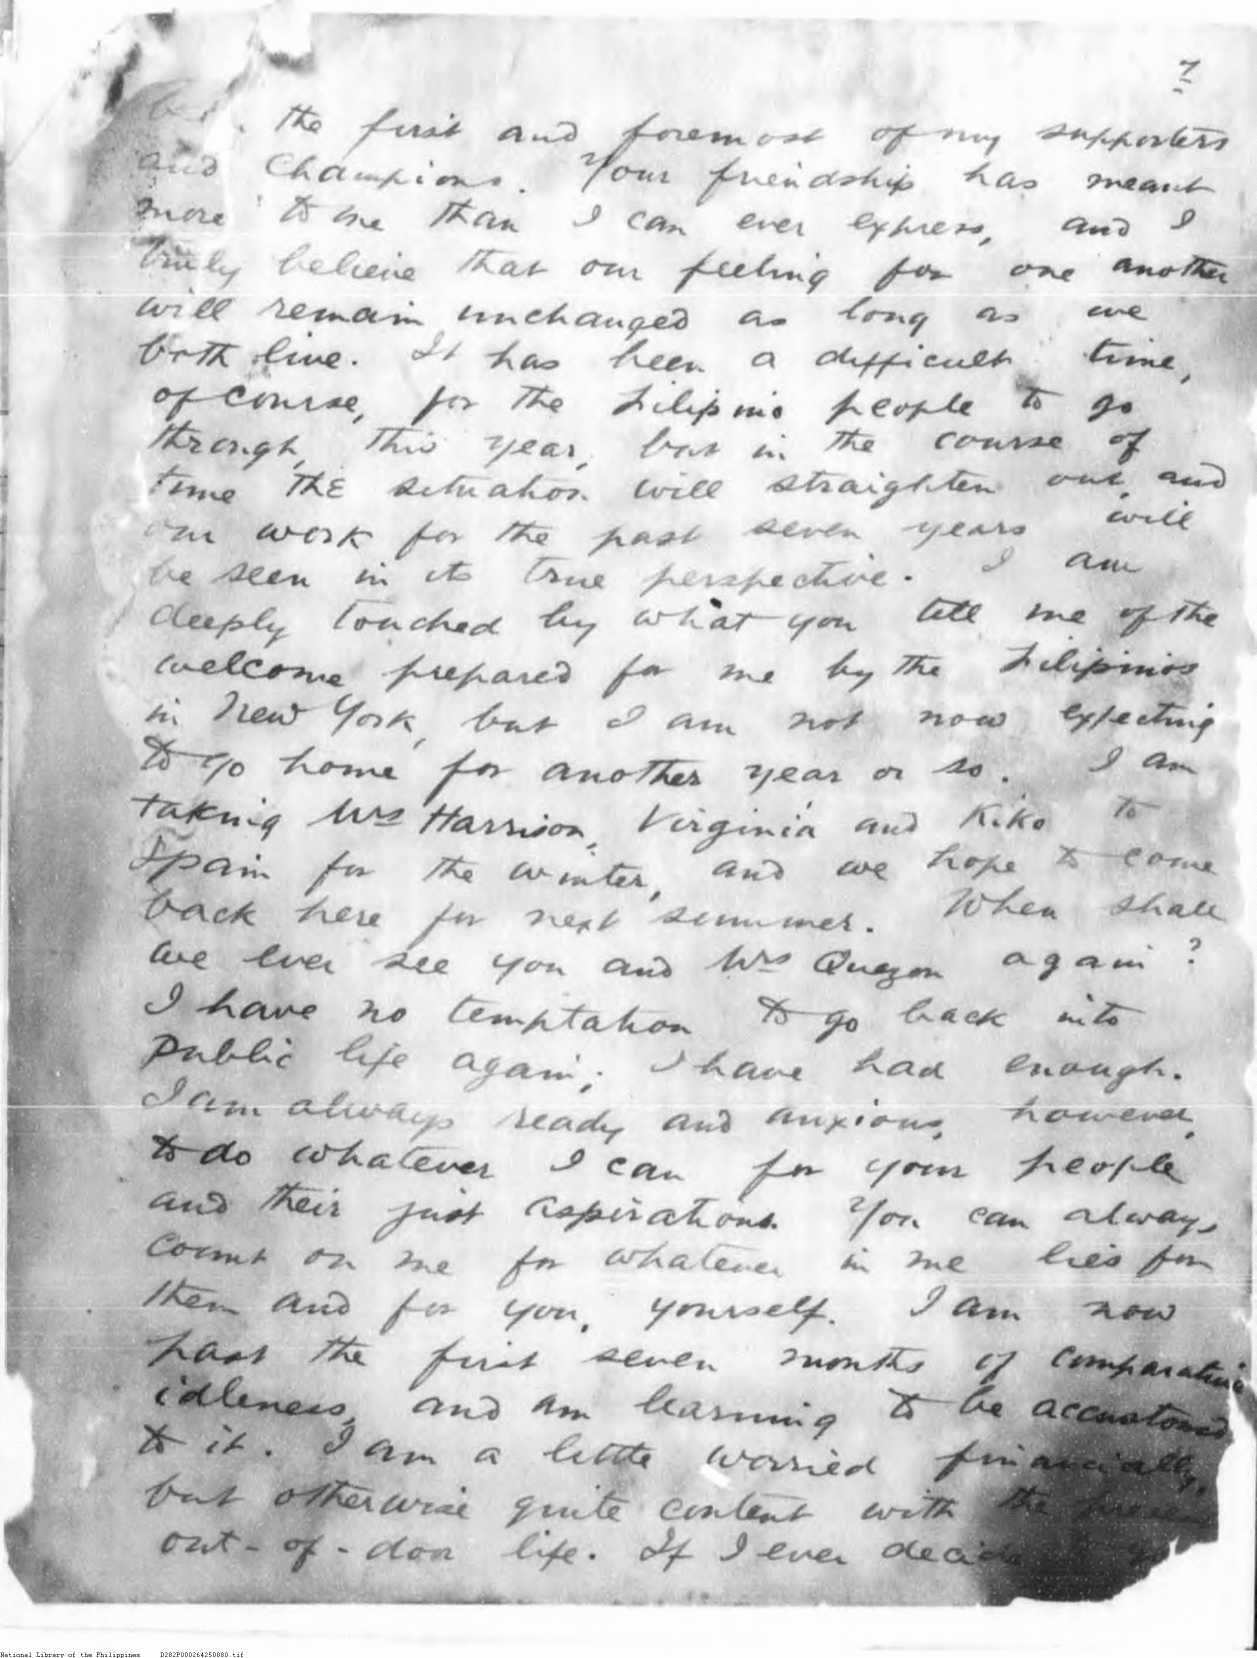 7
the first and foremost of my supporters
and champions. Your friendship has meant
more to me than I can ever express, and I
truly believe that our feeling for one another
will remain unchanged as long as we
both live. It has been a difficult time,
of course, for the Filipino people to go
through, this year, but in the course of
time the situation will straighten out, and
our work for the past seven years will
be seen in its true perspective. I am
deeply touched by what you tell me of the
welcome prepared for me by the Filipinos
in New York, but I am not now expecting
to go home for another year or so. I am
taking Mrs Harrison, Virginia and Kiko to
Spain for the winter, and we hope to come
back here for next summer. When shall
we ever see you and Mrs Quezon again?
I have no temptation to go back into
public life again; I have had enough.
I am always ready and anxious, however,
to do whatever I can for your people
and their just aspirations. You can always
count on me for whatever in me lies for
them and for you, yourself. I am now
past the first seven months of comparative
idleness, and am learning to be accustomed
to it. I am a little worried financially,
but otherwise quite content with the present
out-of-door life. If I ever decide to go
National Library of the Philippines D282P000264250080.tif